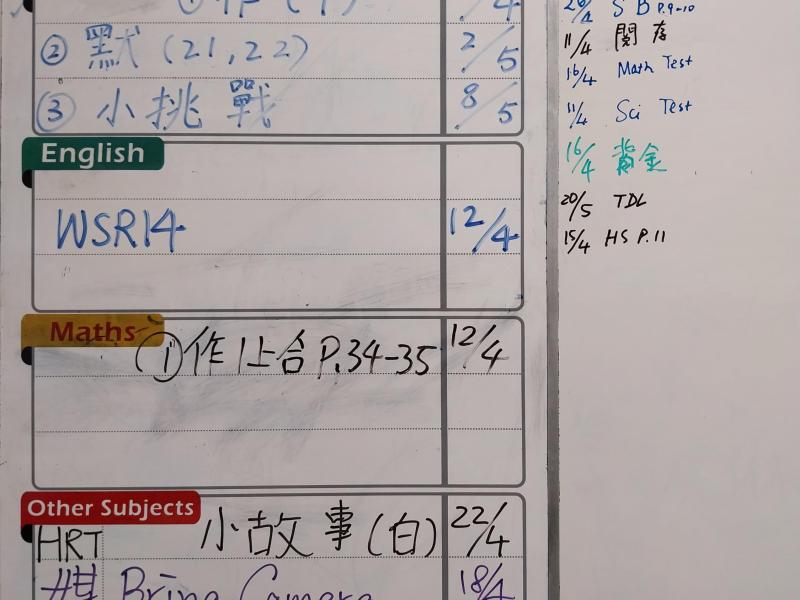 ① 作 ( 1 ) /4
② 默 (21,22) 2/5
③ 小挑戰 8/5
English
WSR14 12/4
Maths
① 作 1上合 P.34-35 12/4
Other Subjects
HRT 小故事(白) 22/4
Bring Camera 18/4
26/4 SB P.9-10
11/4 閱存
16/4 Math Test
11/4 Sci Test
16/4 金
20/5 TDL
15/4 HS P.11